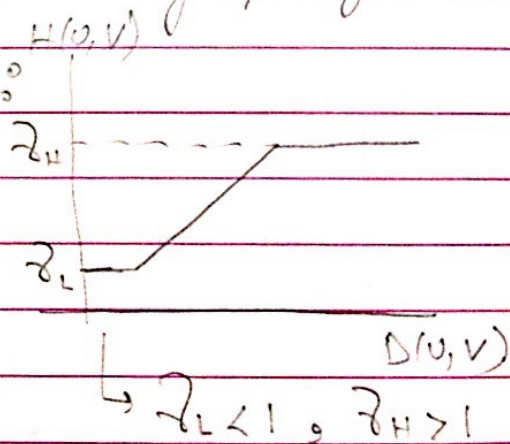 H(U,V)
γH
γL
D(U,V)
↳ γL < 1, γH > 1